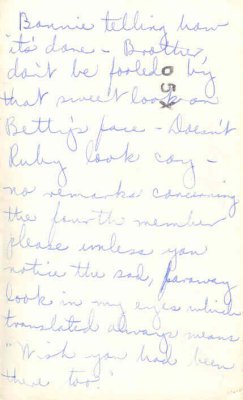 Bonnie telling how
it's done - Brother,
don't be fooled by
that sweet look on
Betty's face - Doesn't
Ruby look coy -
no remarks concerning
the fourth member
please unless you
notice the sad, faraway
look in my eyes which
translated always means
"Wish you had been
there too."